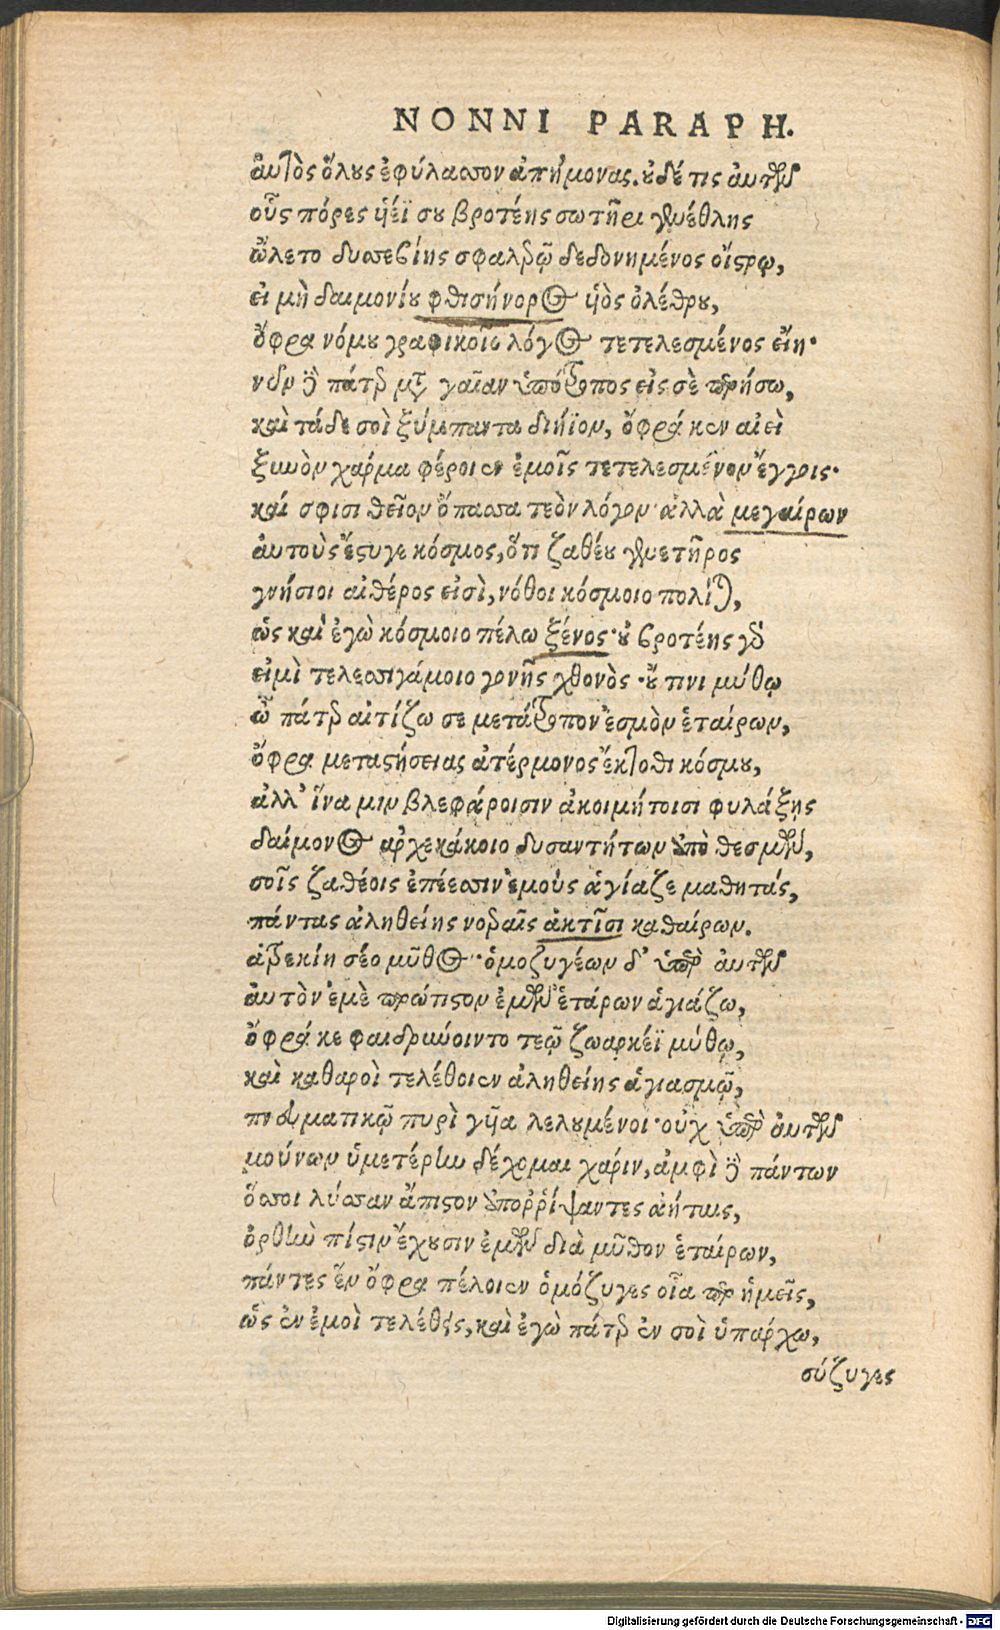 NONNI PARAPH.
ἀυτὸς ὅλους ἐφύλασσον ἀπήμονας. οὐδέ τις ἀυτῶν
οὓς πόρες ἡέϊ σου βροτέης σωτῆρι γενέθλης
ὤλετο δυσσεβίης σφαλερῷ δεδονημένος οἴστρῳ,
εἰ μὴ δαιμονίου φθισήνορος ἡὸς ὀλέθρου,
ὄφρα νόμου γραφικοῖο λόγος τετελεσμένος εἴη·
νῦν δὲ πάτερ μετὰ γαῖαν ὑπότροπος εἰς σὲ περήσω,
καὶ τάδε σοὶ ξύμπαντα διήϊον, ὄφρά κεν αἰεὶ
ξυνὸν χάρμα φέροιεν ἐμοῖς τετελεσμένον ἔγγοις·
καί σφισι θεῖον ὄπασσα τεὸν λόγον· ἀλλὰ μεγαίρων
ἀυτοὺς ἔστυγε κόσμος, ὅτι ζαθέου γενετῆρος
γνήσιοι αἰθέρος εἰσὶ, νόθοι κόσμοιο πολῖται,
ὡς καὶ ἐγὼ κόσμοιο πέλω ξένος· οὐ βροτέης γὰρ
εἰμὶ τελεσσιγάμοιο γονῆς χθονὸς· οὔ τινι μύθῳ
ὦ πάτερ αἰτίζω σε μετάτροπον ἐσμὸν ἑταίρων,
ὄφρα μεταστήσειας ἀτέρμονος ἔκτοθι κόσμου,
ἀλλ' ἵνα μιν βλεφάροισιν ἀκοιμήτοισι φυλάξῃς
δαίμονος ἀρχεκάκοιο δυσαντήτων ἀπὸ θεσμῶν,
σοῖς ζαθέοις ἐπέεσσιν ἐμοὺς ἁγίαζε μαθητάς,
πάντας ἀληθείης νοεραῖς ἀκτῖσι καθαίρων.
ἀτρεκίη σέο μῦθος· ὁμοζυγέων δ' ὑπὲρ ἀυτῶν
ἀυτὸν ἐμὲ πρώτιστον ἐμῶν ἑτάρων ἁγιάζω,
ὄφρά κε φαιδρύνοιντο τεῷ ζωαρκέϊ μύθῳ,
καὶ καθαροὶ τελέθοιεν ἀληθείης ἁγιασμῷ,
πνευματικῷ πυρὶ γυῖα λελουμένοι· οὐχ ὑπὲρ ἀυτῶν
μούνων ὑμετέρην δέχομαι χάριν, ἀμφὶ δὲ πάντων
ὅσσοι λύσσαν ἄπιστον ἀπορῥίψαντες ἀήταις,
ὀρθὴν πίστιν ἔχουσιν ἐμῶν διὰ μῦθον ἑταίρων,
πάντες ἓν ὄφρα πέλοιεν ὁμόζυγες οἷα περ ἡμεῖς,
ὡς ἐν ἐμοὶ τελέθεις, καὶ ἐγὼ πάτερ ἐν σοὶ ὑπάρχω,
σύζυγες
Digitalisierung gefördert durch die Deutsche Forschungsgemeinschaft - DFG